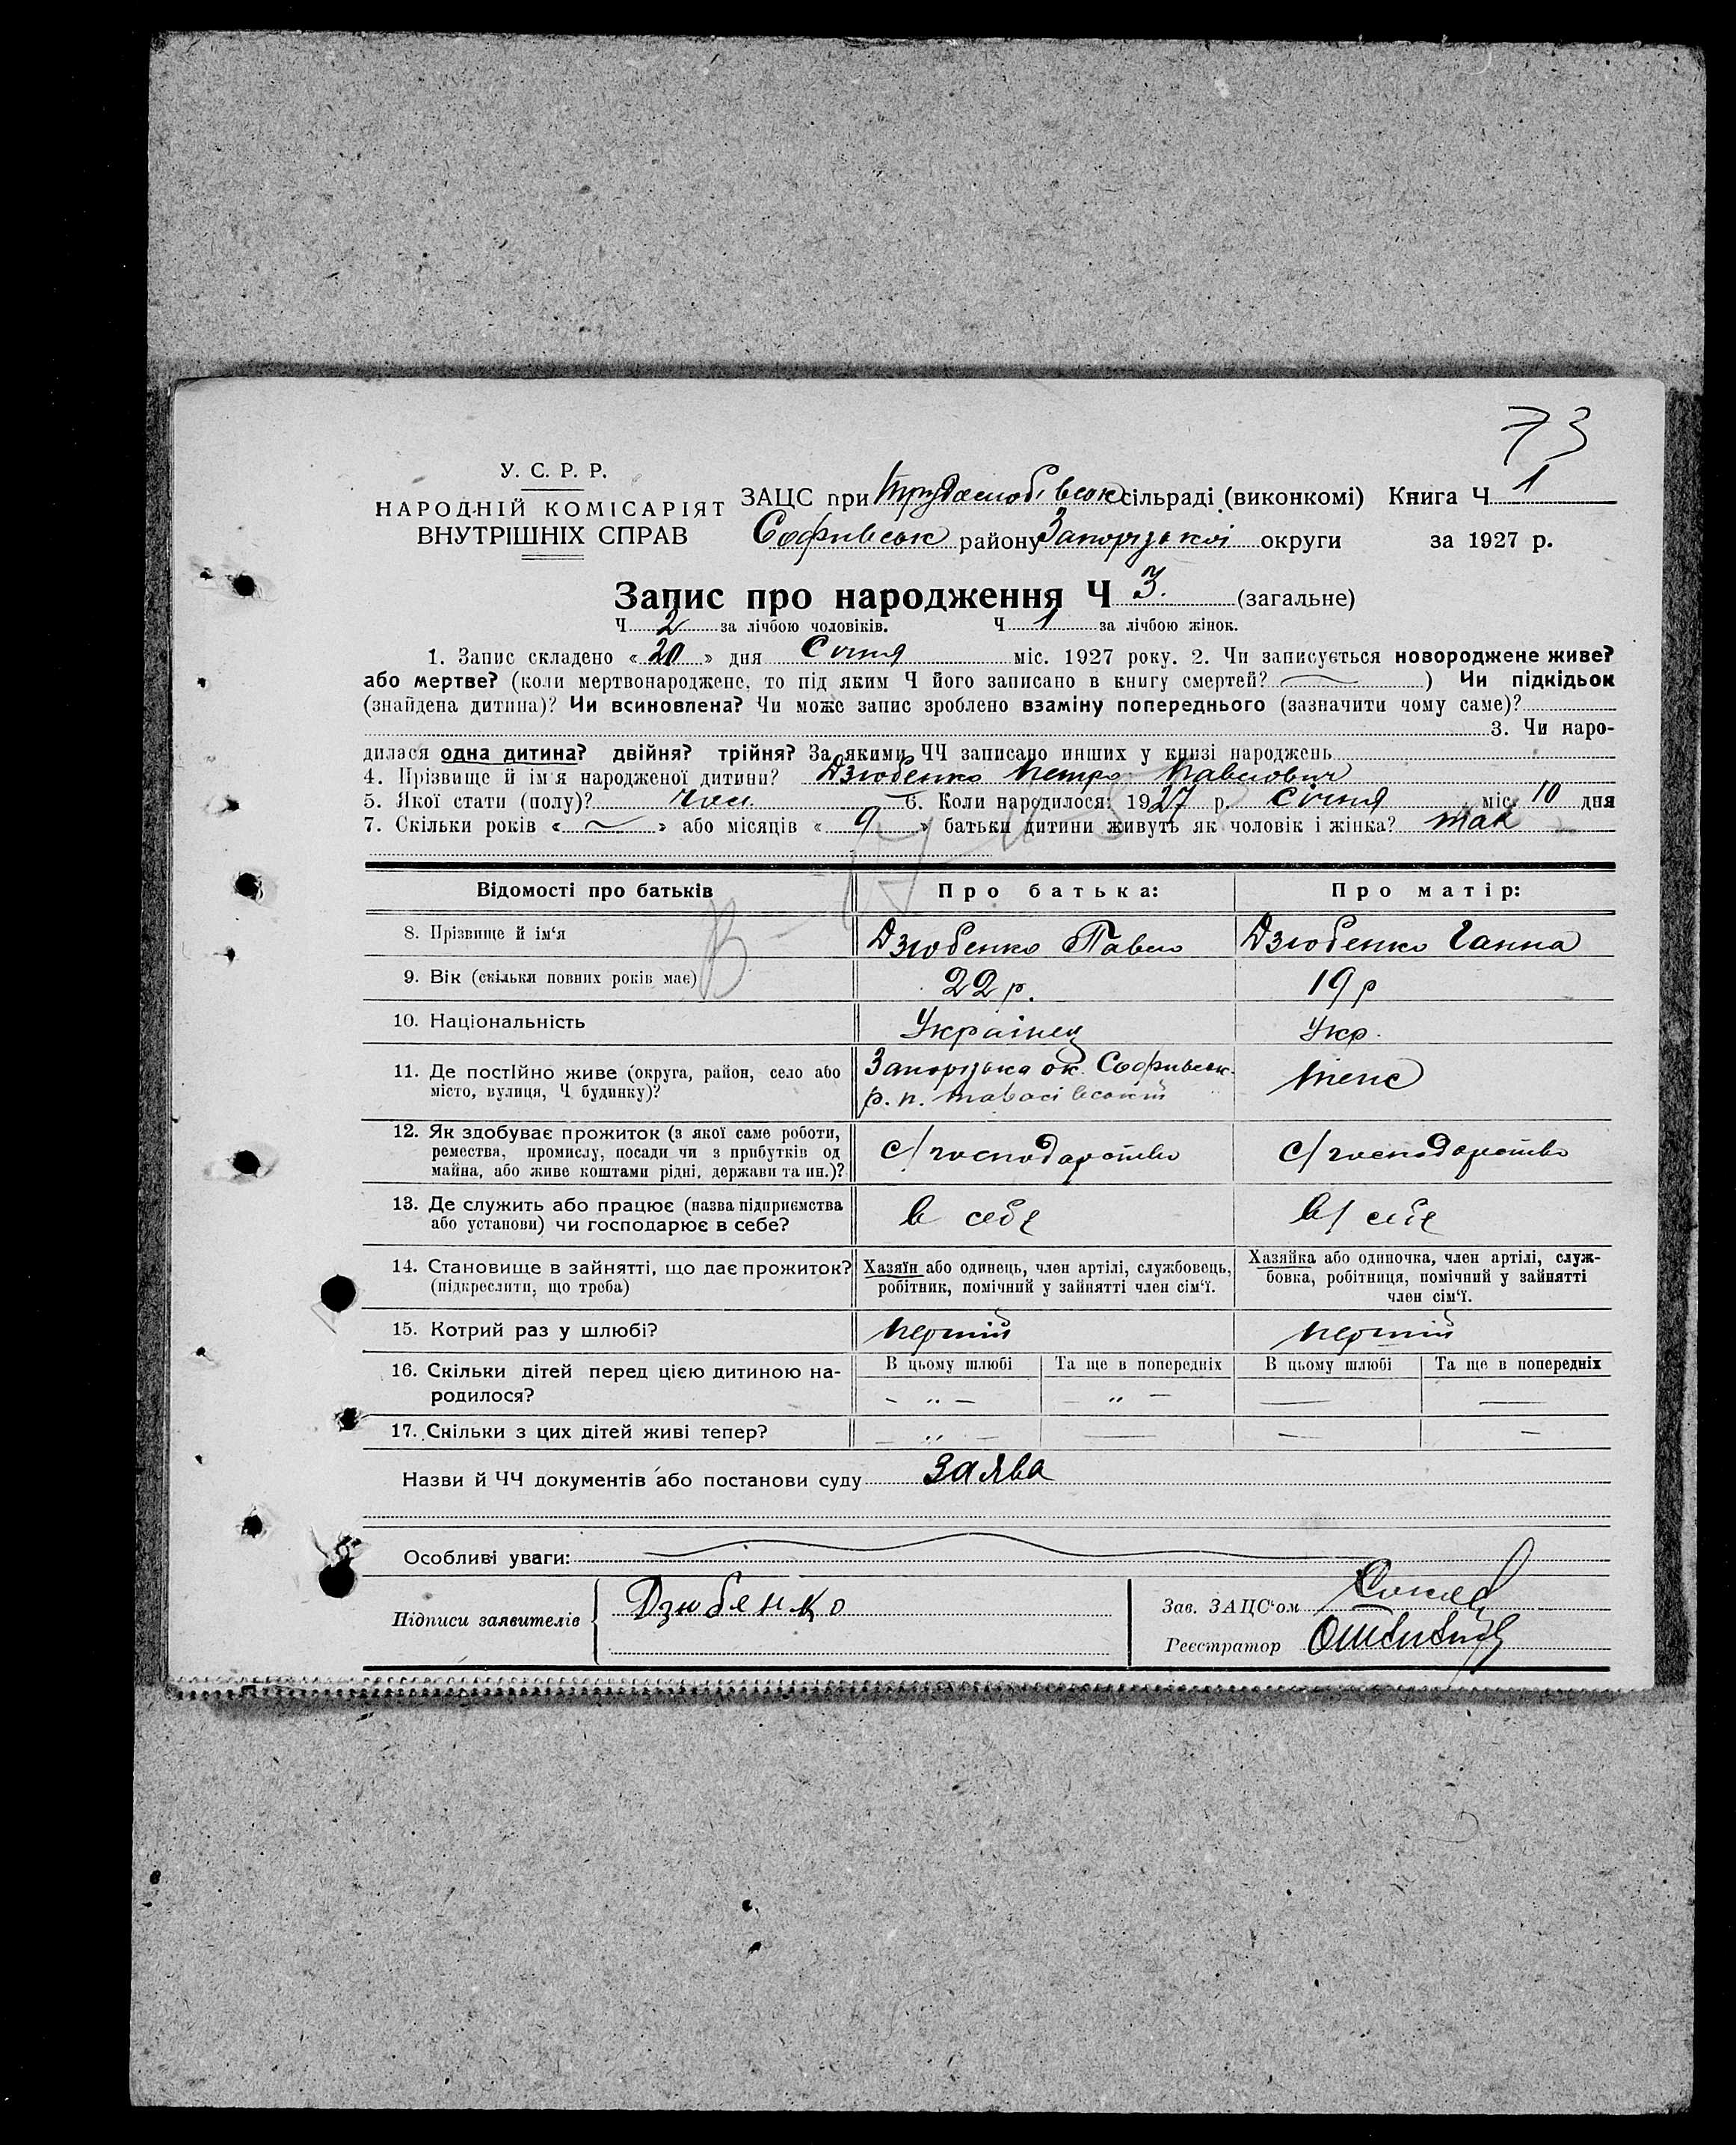 73
У. С. Р. Р.
НАРОДНІЙ КОМІСАРІЯТ
ВНУТРІШНІХ СПРАВ
ЗАЦС при Трудолюбівськ сільраді (виконкомі) Книга Ч 1
Софивськ району Запорізької округи за 1927 р.
Запис про народження Ч 3. (загальне)
Ч 2 за лічбою чоловіків. Ч 1 за лічбою жінок.
1. Запис складено « 20 » дня Січня міс. 1927 року. 2. Чи записується новороджене живе?
або мертве? (коли мертвонароджене, то під яким Ч його записано в книгу смертей? ) Чи підкідьок
(знайдена дитина)? Чи всиновлена? Чи може запис зроблено взаміну попереднього (зазначити чому саме)?
3. Чи наро-
дилася одна дитина? двійня? трійня? За якими ЧЧ записано инших у книзі народжень
4. Прізвище й ім'я народженої дитини? Дзюбенко Петро Павлович
5. Якої стати (полу)? чол 6. Коли народилося: 1927 р. січня міс. 10 дня
7. Скільки років « » або місяців « 9 » батьки дитини живуть як чоловік і жінка? так
Відомості про батьків Про батька: Про матір:
8. Прізвище й ім'я Дзюбенко Павло Дзюбенко Ганна
9. Вік (скільки повних років має) 22 р. 19 р
10. Національність Українец Укр.
11. Де постійно живе (округа, район, село або Запорізька ок. Софивськ.
місто, вулиця, Ч будинку)? р. п.
12. Як здобуває прожиток (з якої саме роботи,
ремества, промислу, посади чи з прибутків од с/господарство с/господарство
майна, або живе коштами рідні, держави та ин.)?
13. Де служить або працює (назва підприємства
або установи) чи господарює в себе? в себе в/ себе
14. Становище в зайнятті, що дає прожиток? Хазяїн або одинець, член артілі, службовець, Хазяйка або одиночка, член артілі, служ-
(підкреслити, що треба) робітник, помічний у зайнятті член сім'ї. бовка, робітниця, помічний у зайнятті
член сім'ї.
15. Котрий раз у шлюбі? перший перший
16. Скільки дітей перед цією дитиною на- В цьому шлюбі Та ще в попередніх В цьому шлюбі Та ще в попередніх
родилося? – „ – – „ – — —
17. Скільки з цих дітей живі тепер? – „ – — — –
Назви й ЧЧ документів або постанови суду заява
Особливі уваги:
Підписи заявителів Дзюбенко Зав. ЗАЦС'ом
Реєстратор